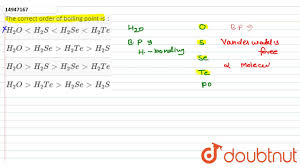 14947167
The correct order of boiling point is :
H₂O < H₂S < H₂Se < H₂Te
H₂O > H₂Se > H₂Te > H₂S
H₂O > H₂S > H₂Se > H₂Te
H₂O > H₂Te > H₂Se > H₂S
H₂O
B P ⇒
H - bonding
O
S
Se
Te
Po
B P ⇒
Vander waal's
force
α molecul
doubtnut